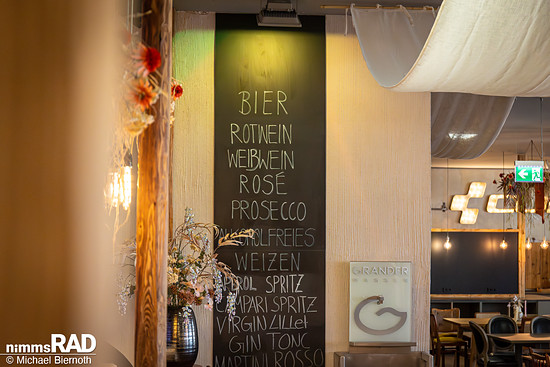 BIER
ROTWEIN
WEIßWEIN
ROSÉ
PROSECCO
WEIZEN
SPRITZ
CAMPARI SPRITZ
VIRGIN Zillet
GIN TONC
MARTINI ROSSO
GRANDER
nimmsRAD
© Michael Biernoth